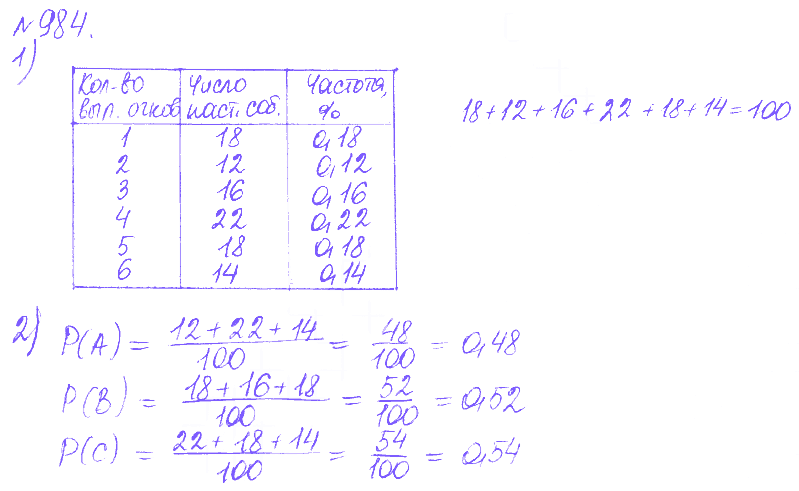 №984.
1)
Кол-во Число Частота,
вып. очков наст. соб. %
1 18 0,18
2 12 0,12
3 16 0,16
4 22 0,22
5 18 0,18
6 14 0,14
18+12+16+22+18+14=100
2) P(A) = 12+22+14/100 = 48/100 = 0,48
P(B) = 18+16+18/100 = 52/100 = 0,52
P(C) = 22+18+14/100 = 54/100 = 0,54